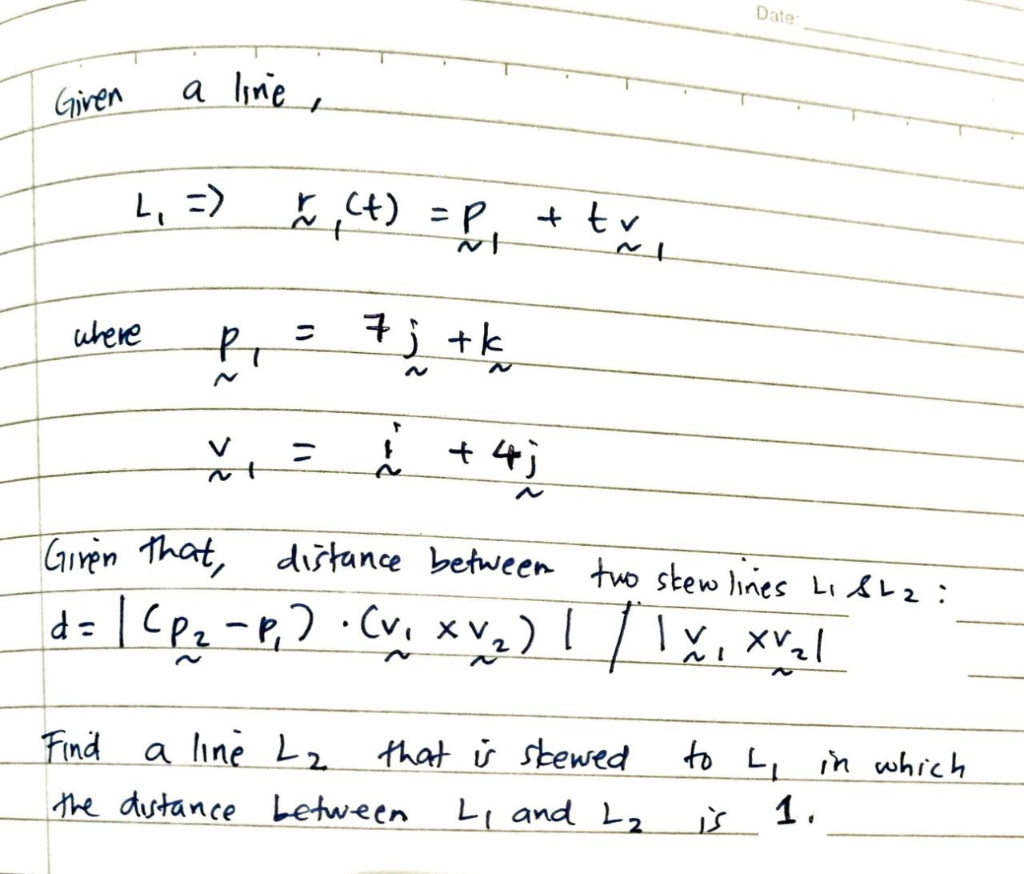 Date:
Given a line,
L₁ => r̰₁(t) = p̰₁ + t v̰₁
where p̰₁ = 7j̰ + k̰
v̰₁ = ḭ + 4j̰
Given that, distance between two skew lines L₁ & L₂ :
d = |(p̰₂ - p₁) · (v̰₁ x v̰₂)| / |v̰₁ x v̰₂|
Find a line L₂ that is skewed to L₁ in which
the distance between L₁ and L₂ is 1.